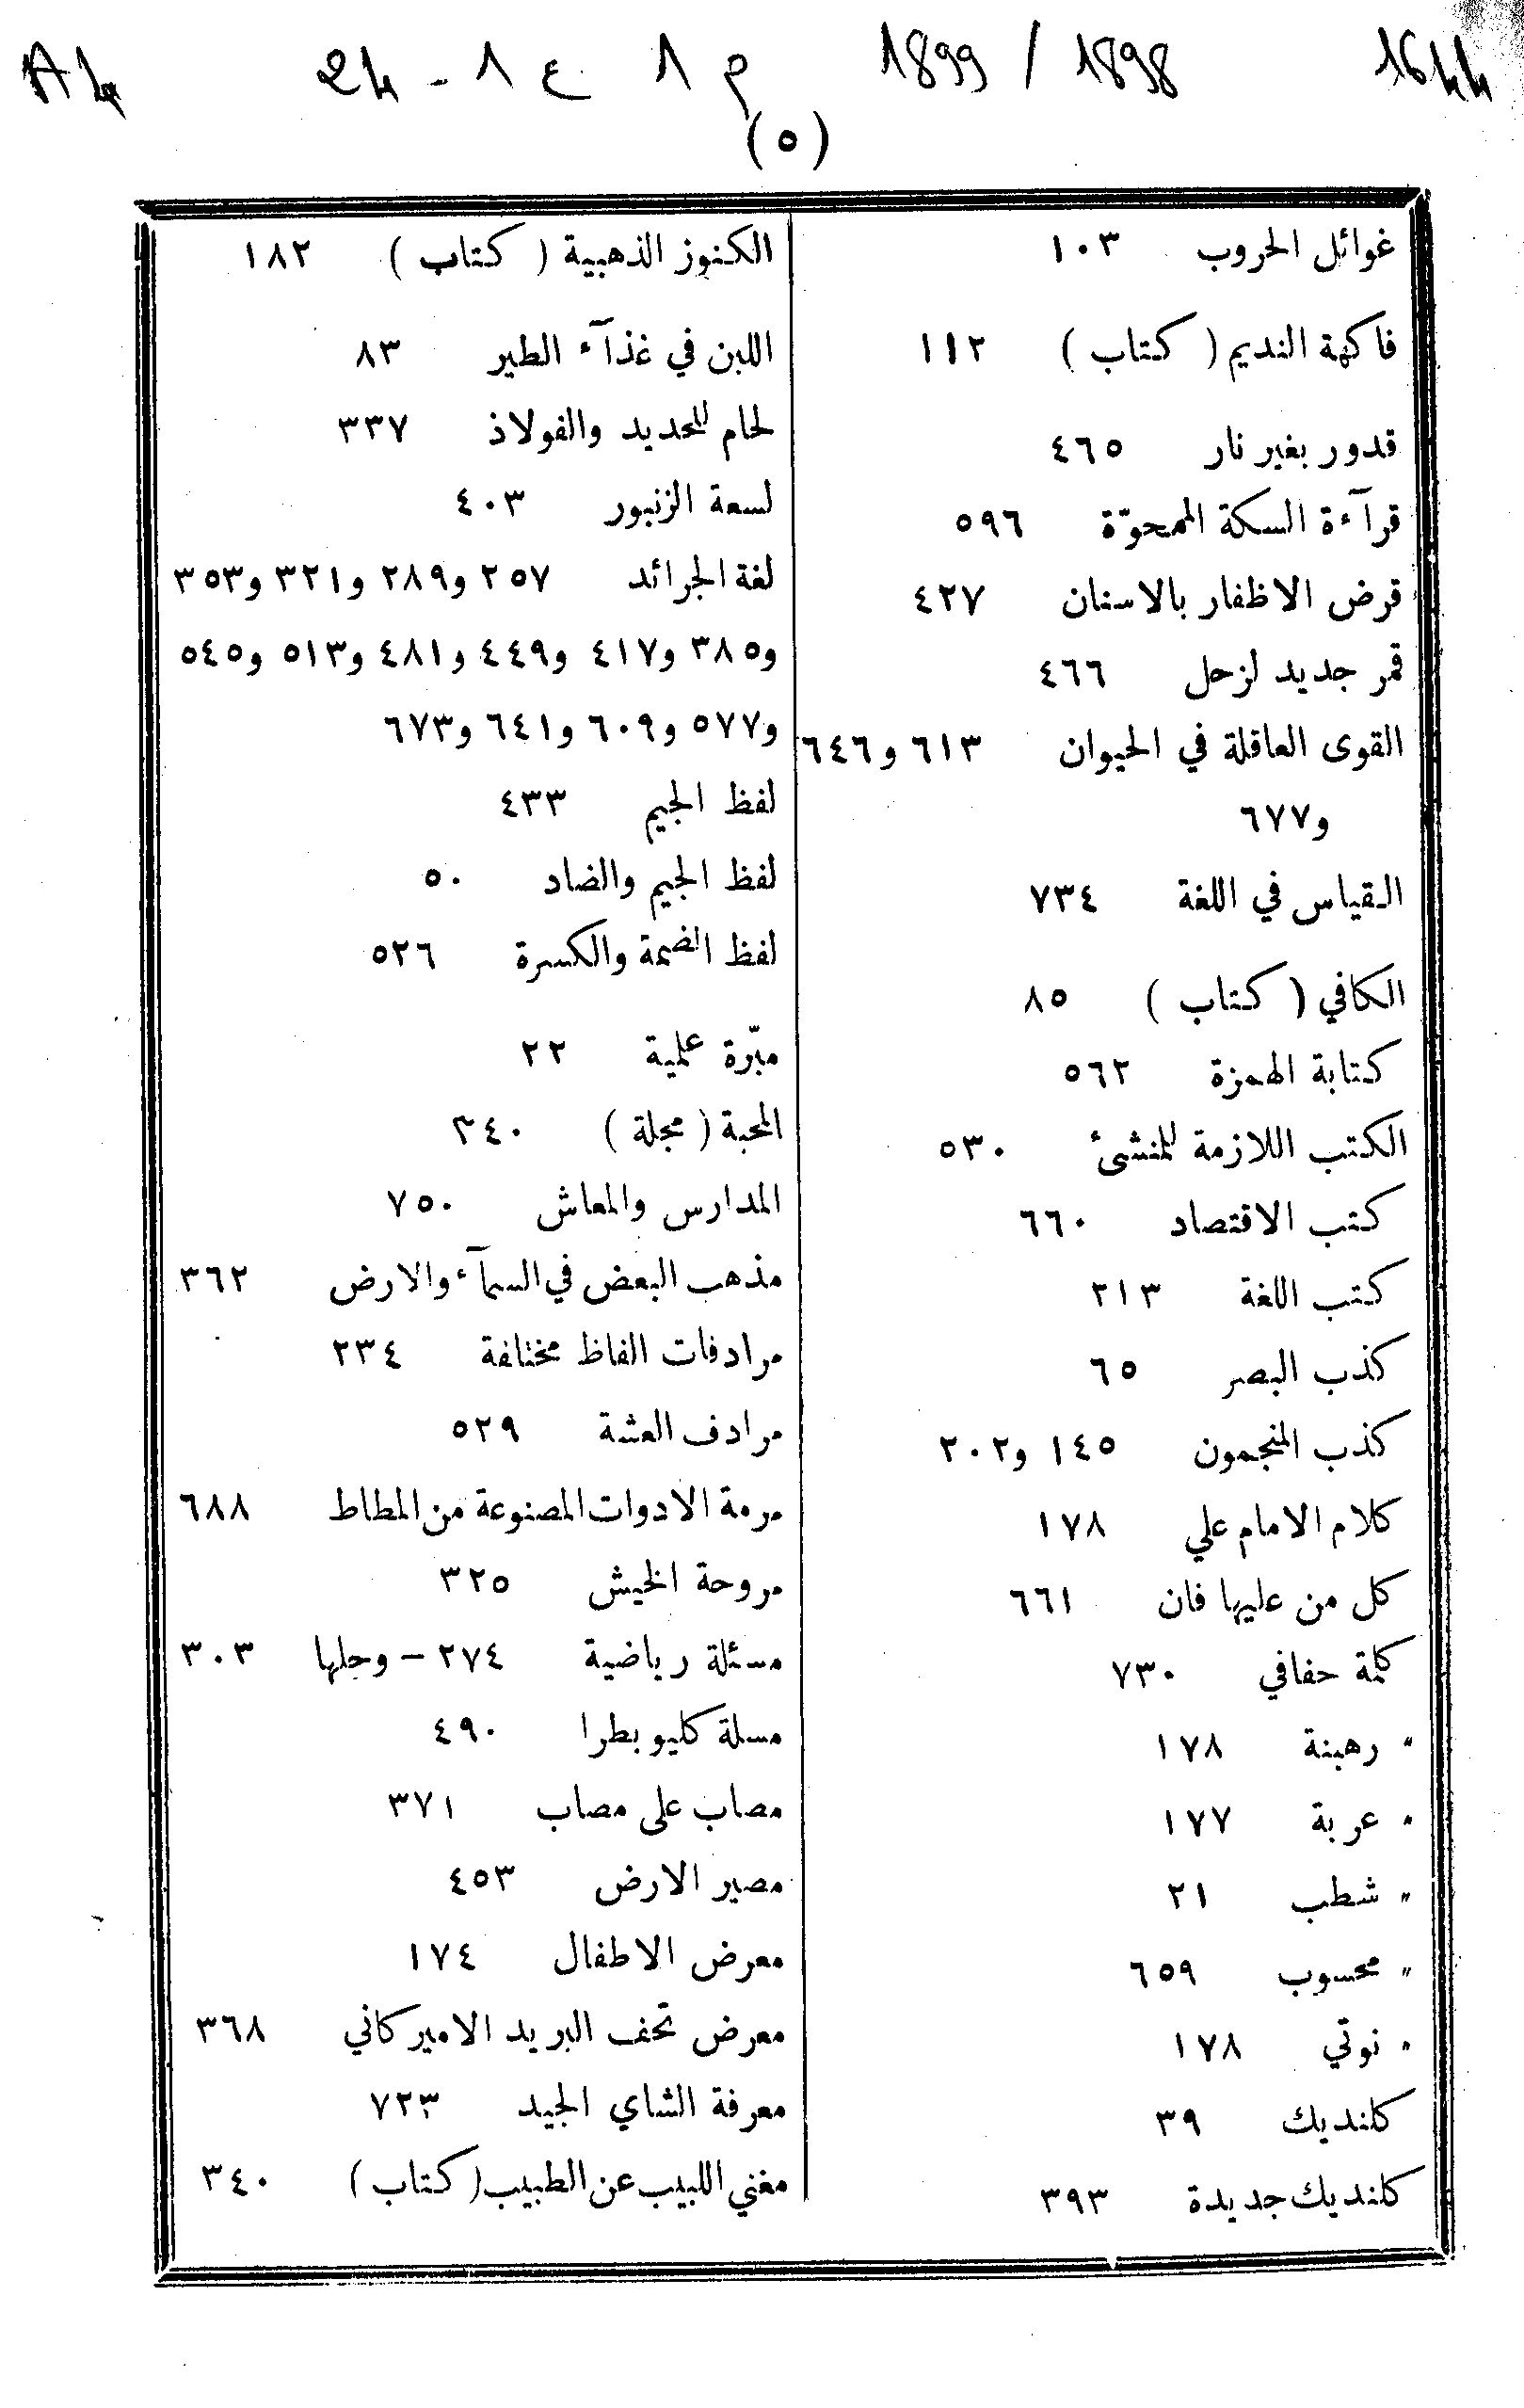 1644 1898 / 1899 م ١ ع ١ - 24 A4
(٥)
غوائل الحروب ١٠٣
فاكهة النديم ( كتاب ) ١١٢
قدور بغير نار ٤٦٥
قرآءة السكة الممحوّة ٥٩٦
قرض الاظفار بالاسنان ٤٢٧
قمر جديد لزحل ٤٦٦
القوى العاقلة في الحيوان ٦١٣ و٦٤٦
و٦٧٧
القياس في اللغة ٧٣٤
الكافي ( كتاب ) ٨٥
كتابة الهمزة ٥٦٢
الكتب اللازمة للمنشئ ٥٣٠
كتب الاقتصاد ٦٦٠
كتب اللغة ٢١٣
كذب البصر ٦٥
كذب المنجمون ١٤٥ و٢٠٢
كلام الامام علي ١٧٨
كل من عليها فان ٦٦١
كلمة حفافي ٧٣٠
〃 رهبنة ١٧٨
〃 عربة ١٧٧
〃 شطب ٢١
〃 محسوب ٦٥٩
〃 نوتي ١٧٨
كلنديك ٣٩
كلنديك جديدة ٣٩٣
الكنوز الذهبية ( كتاب ) ١٨٢
اللبن في غذآء الطير ٨٣
لحام للحديد والفولاذ ٣٣٧
لسعة الزنبور ٤٠٣
لغة الجرائد ٢٥٧ و٢٨٩ و٣٢١ و٣٥٣
و٣٨٥ و٤١٧ و٤٤٩ و٤٨١ و٥١٣ و٥٤٥
و٥٧٧ و٦٠٩ و٦٤١ و٦٧٣
لفظ الجيم ٤٣٣
لفظ الجيم والضاد ٥٠
لفظ الضمة والكسرة ٥٢٦
مبّرة علمية ٢٢
المحبة ( مجلة ) ٣٤٠
المدارس والمعاش ٧٥٠
مذهب البعض في السمآء والارض ٣٦٢
مرادفات الفاظ مختلفة ٢٣٤
مرادف العثة ٥٢٩
مرمة الادوات المصنوعة من المطاط ٦٨٨
مروحة الخيش ٣٢٥
مسئلة رياضية ٢٧٤ – وحلها ٣٠٣
مسلة كليوبطرا ٤٩٠
مصاب على مصاب ٣٧١
مصير الارض ٤٥٣
معرض الاطفال ١٧٤
معرض تحف البريد الاميركاني ٣٦٨
معرفة الشاي الجيد ٧٢٣
مغني اللبيب عن الطبيب ( كتاب ) ٣٤٠